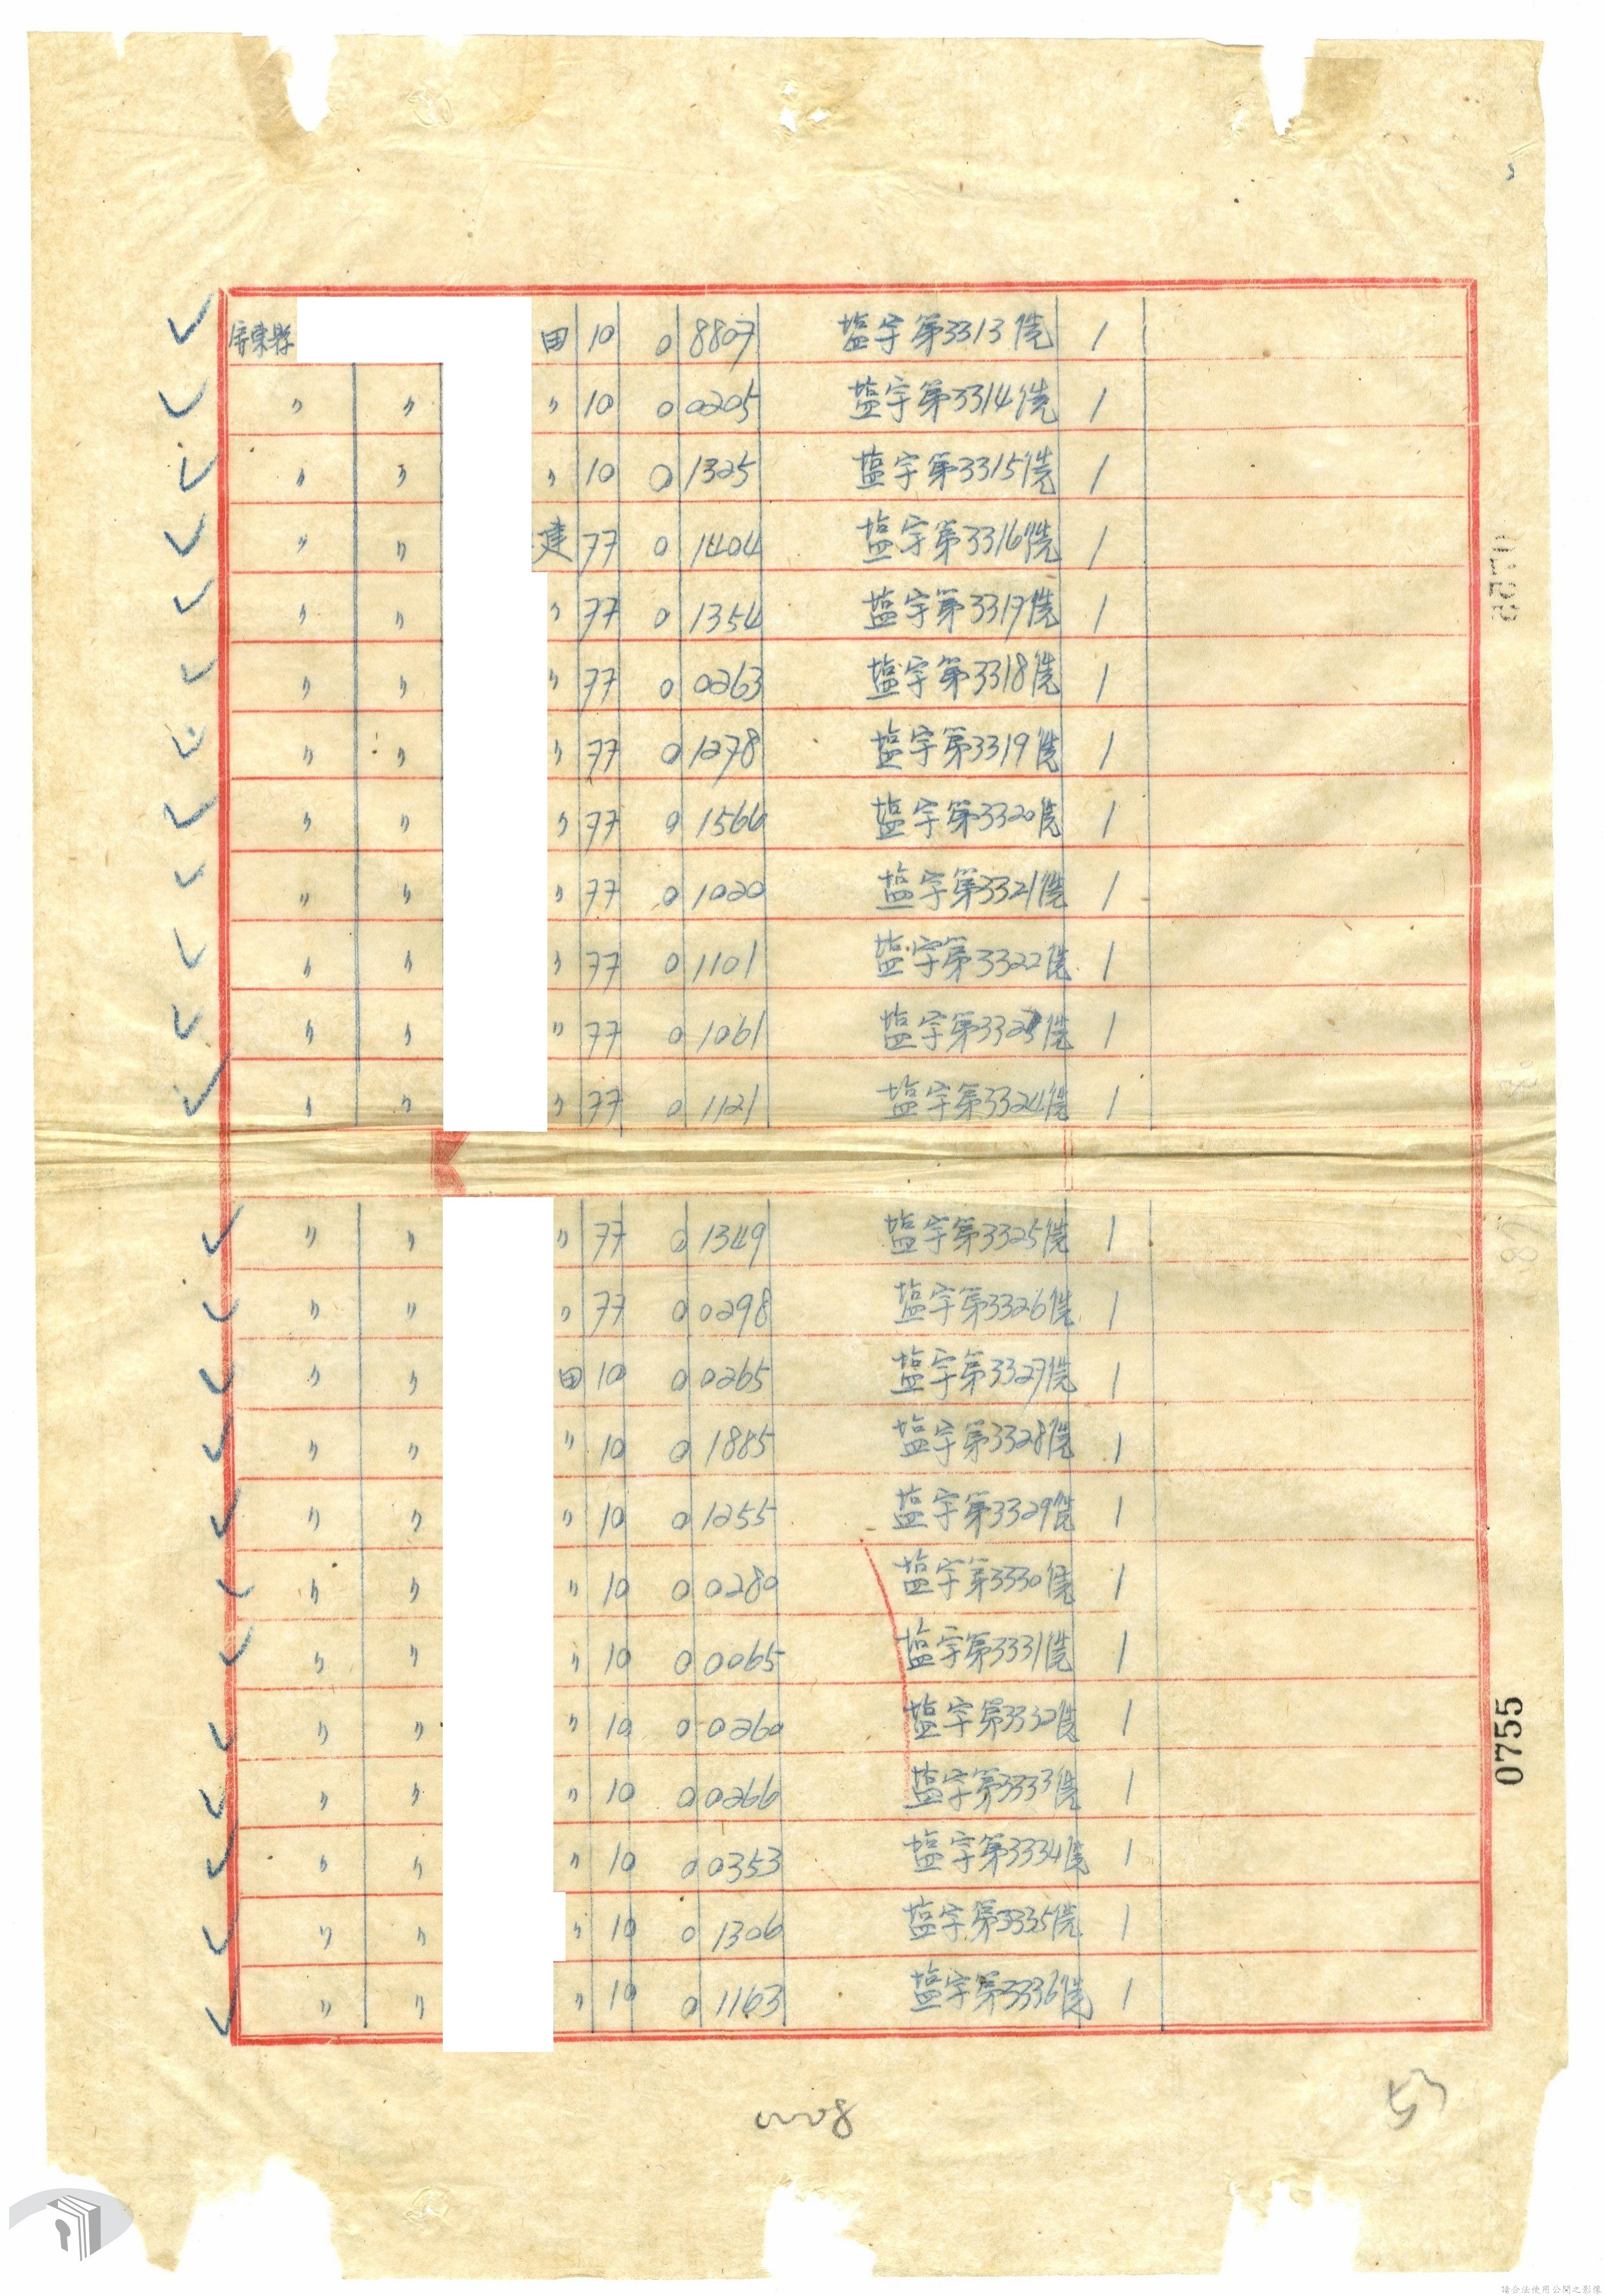 屏東縣 田 10 0 8807 塩字第3313號 1
〃 〃 〃 10 0 0205 塩字第3314號 1
〃 〃 〃 10 0 1325 塩字第3315號 1
〃 〃 建 77 0 1404 塩字第3316號 1
〃 〃 〃 77 0 1354 塩字第3317號 1
〃 〃 〃 77 0 0263 塩字第3318號 1
〃 〃 〃 77 0 1278 塩字第3319號 1
〃 〃 〃 77 0 1566 塩字第3320號 1
〃 〃 〃 77 0 1020 塩字第3321號 1
〃 〃 〃 77 0 1101 塩字第3322號 1
〃 〃 〃 77 0 1061 塩字第3323號 1
〃 〃 〃 77 0 1121 塩字第3324號 1
〃 〃 〃 77 0 1349 塩字第3325號 1
〃 〃 〃 77 0 0298 塩字第3326號 1
〃 〃 田 10 0 0265 塩字第3327號 1
〃 〃 〃 10 0 1885 塩字第3328號 1
〃 〃 〃 10 0 1255 塩字第3329號 1
〃 〃 〃 10 0 0280 塩字第3330號 1
〃 〃 〃 10 0 0065 塩字第3331號 1
〃 〃 〃 10 0 0260 塩字第3332號 1
〃 〃 〃 10 0 0266 塩字第3333號 1
〃 〃 〃 10 0 0353 塩字第3334號 1
〃 〃 〃 10 0 1306 塩字第3335號 1
〃 〃 〃 10 0 1163 塩字第3336號 1
0755
53
請合法使用公開之影像